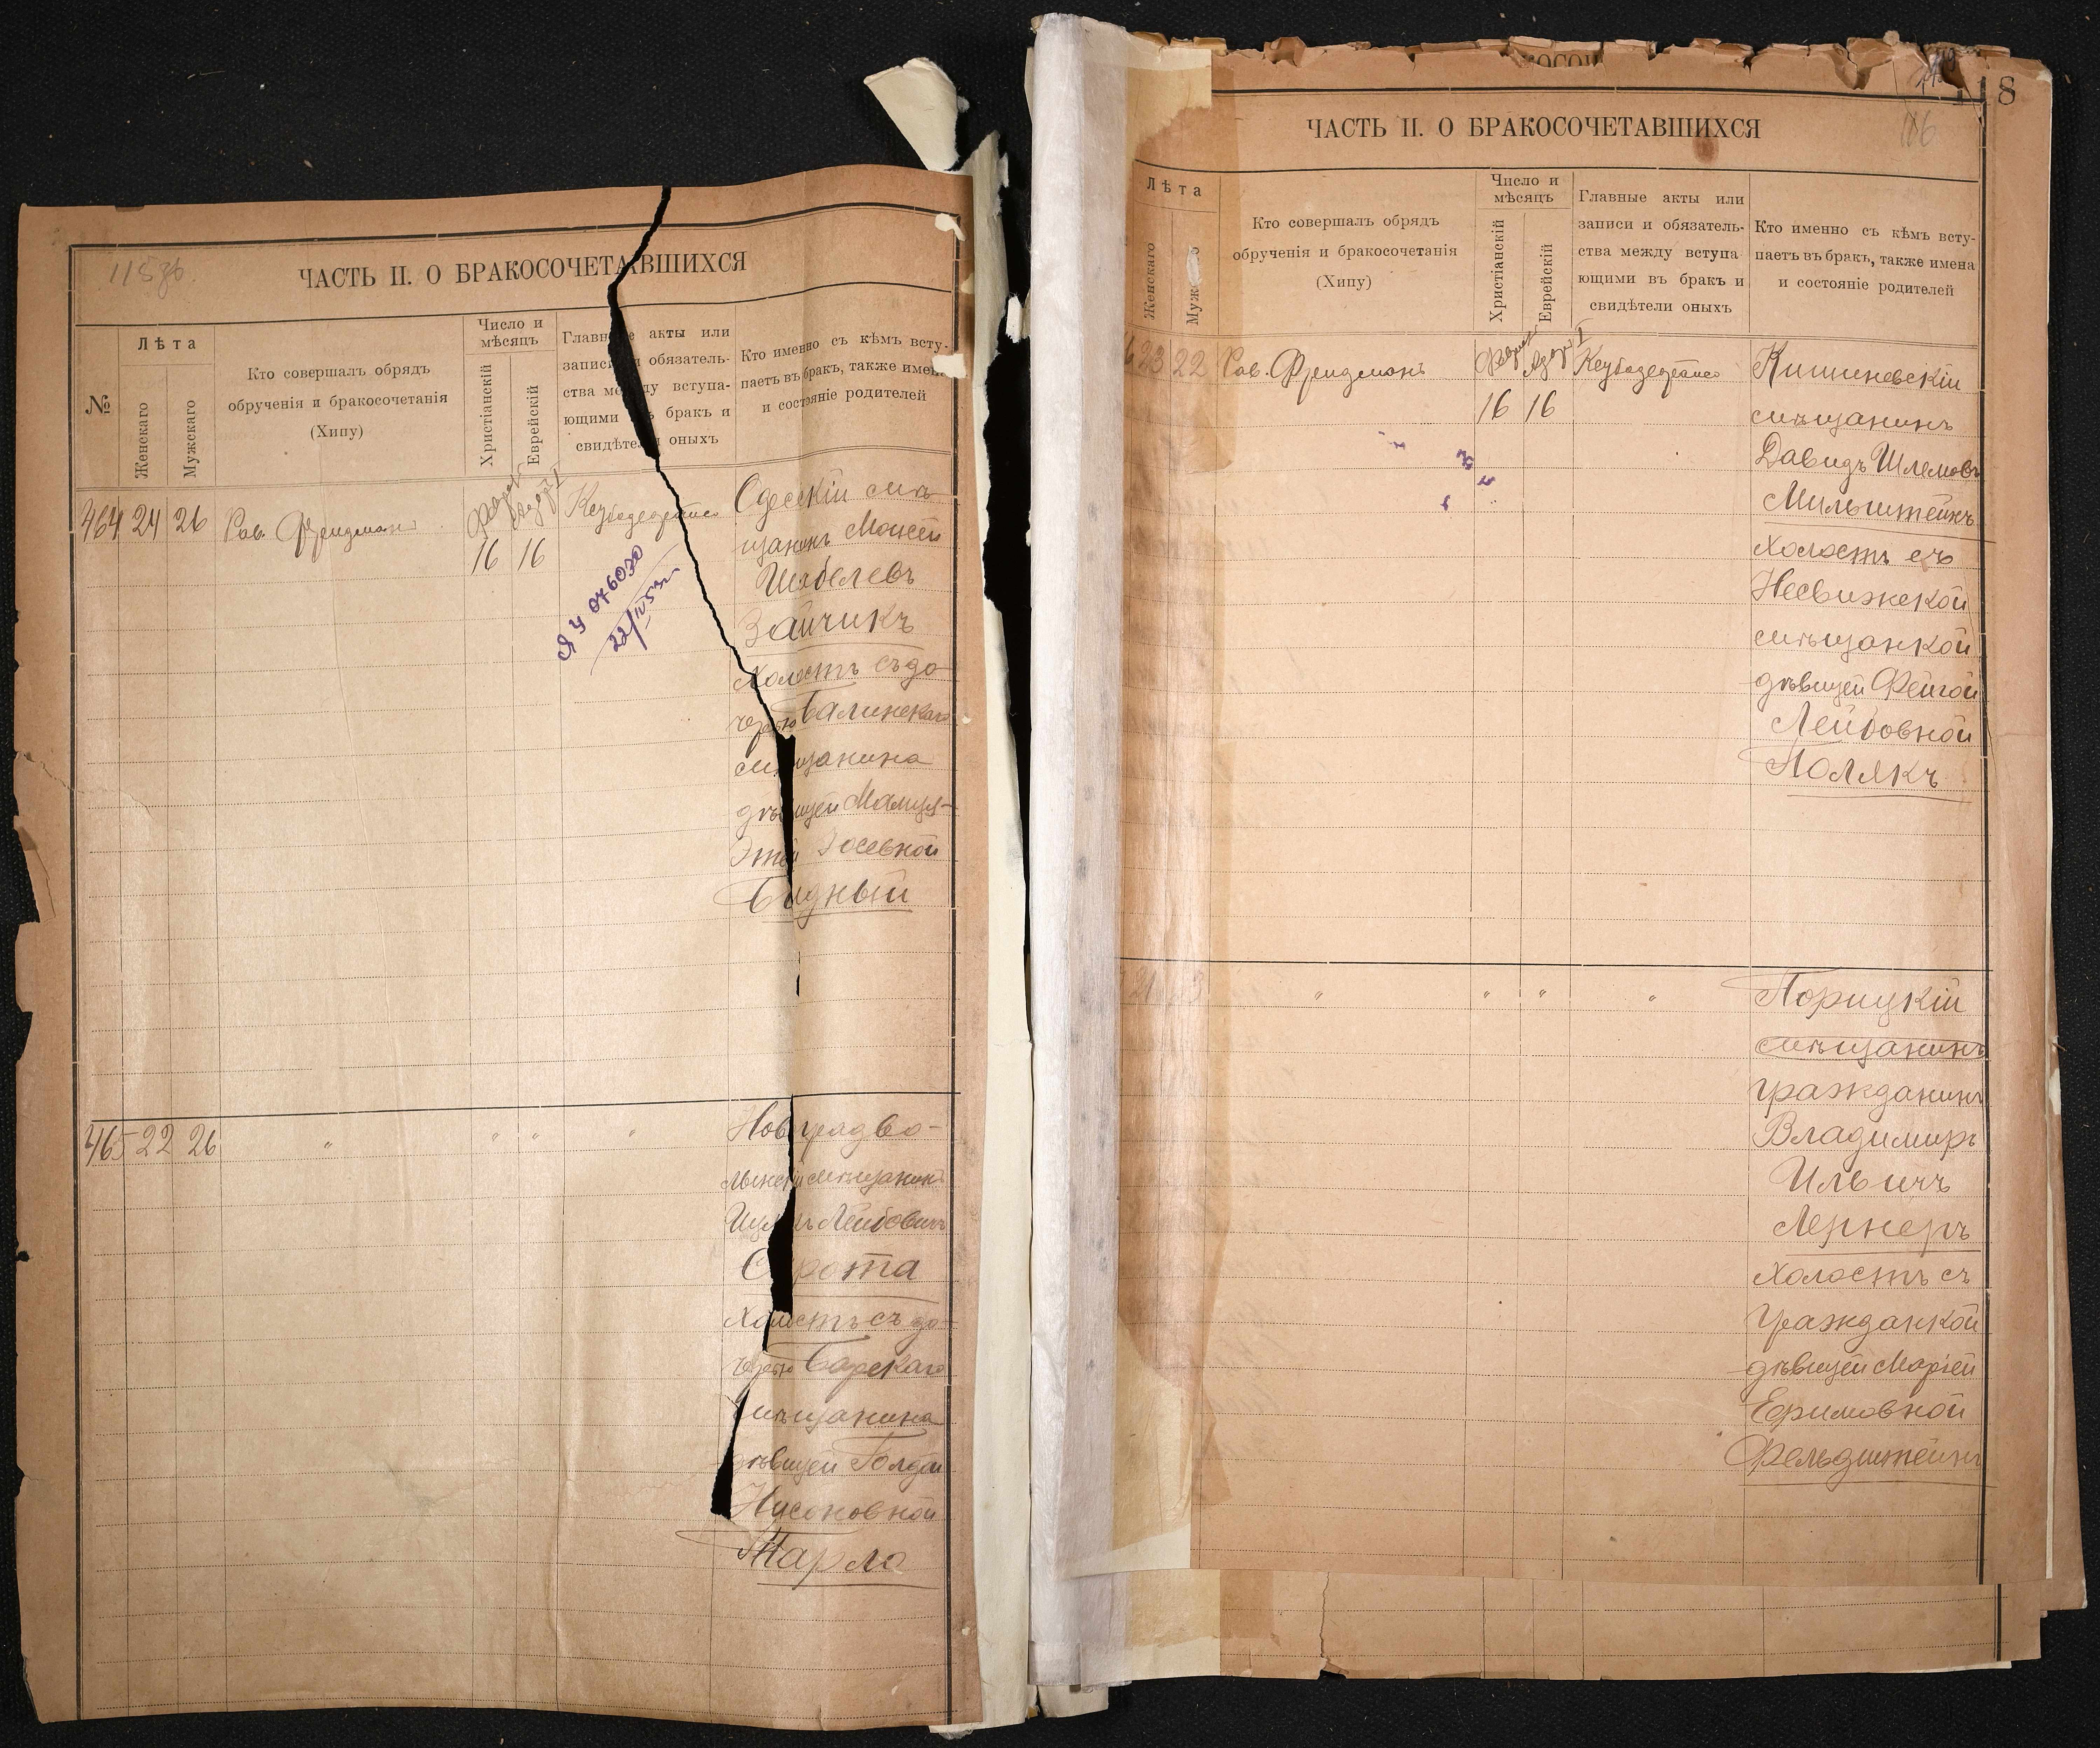 115 об.
ЧАСТЬ II. О БРАКОСОЧЕТАВШИХСЯ
№
Лѣта
Женскаго
Мужскаго
Кто совершалъ обрядъ
обрученія и бракосочетанія
(Хипу)
Число и
мѣсяцъ
Христіанскій
Еврейскій
Главные акты или
записи и обязатель-
ства между вступа-
ющими въ бракъ и
свидѣтели оныхъ
Кто именно съ кѣмъ всту-
паетъ въ бракъ, также имена
и состояніе родителей
464 24 26 Рав. Фридманъ
16 16
Одесскій мѣ-
щанинъ Моисей
Шабелевъ
Зайчикъ
холостъ съ до-
черью Балинскаго
мѣщанина
дѣвицей Малицей-
Этей Іосевной
Бидный
ЯУ 076030
22/IV 53
465 22 26 " " " "
Новградво-
лынскій мѣщанинъ
Лейбовичъ
Сирота
Холостъ съ до-
черью Барскаго
мѣщанина
дѣвицей Голдой
Нусоновной
Тарло
118
116
ЧАСТЬ II. О БРАКОСОЧЕТАВШИХСЯ
Лѣта
Женскаго
Мужскаго
Кто совершалъ обрядъ
обрученія и бракосочетанія
(Хипу)
Число и
мѣсяцъ
Христіанскій
Еврейскій
Главные акты или
записи и обязатель-
ства между вступа
ющими въ бракъ и
свидѣтели оныхъ
Кто именно съ кѣмъ всту-
паетъ въ бракъ, также имена
и состояніе родителей
6 23 22 Рав. Фридманъ
16 16
Кишиневскій
мѣщанинъ
Давидъ Шлемовъ
Мильштейнъ
холостъ съ
Несвижской
мѣщанкой
дѣвицей Фейгой
Лейбовной
Полякъ
21 23 " " " "
Порицкій
мѣщанинъ
гражданинъ
Владимиръ
Ильичъ
Лернеръ
холостъ съ
гражданкой
дѣвицей Маріей
Ефимовной
Фельдштейнъ